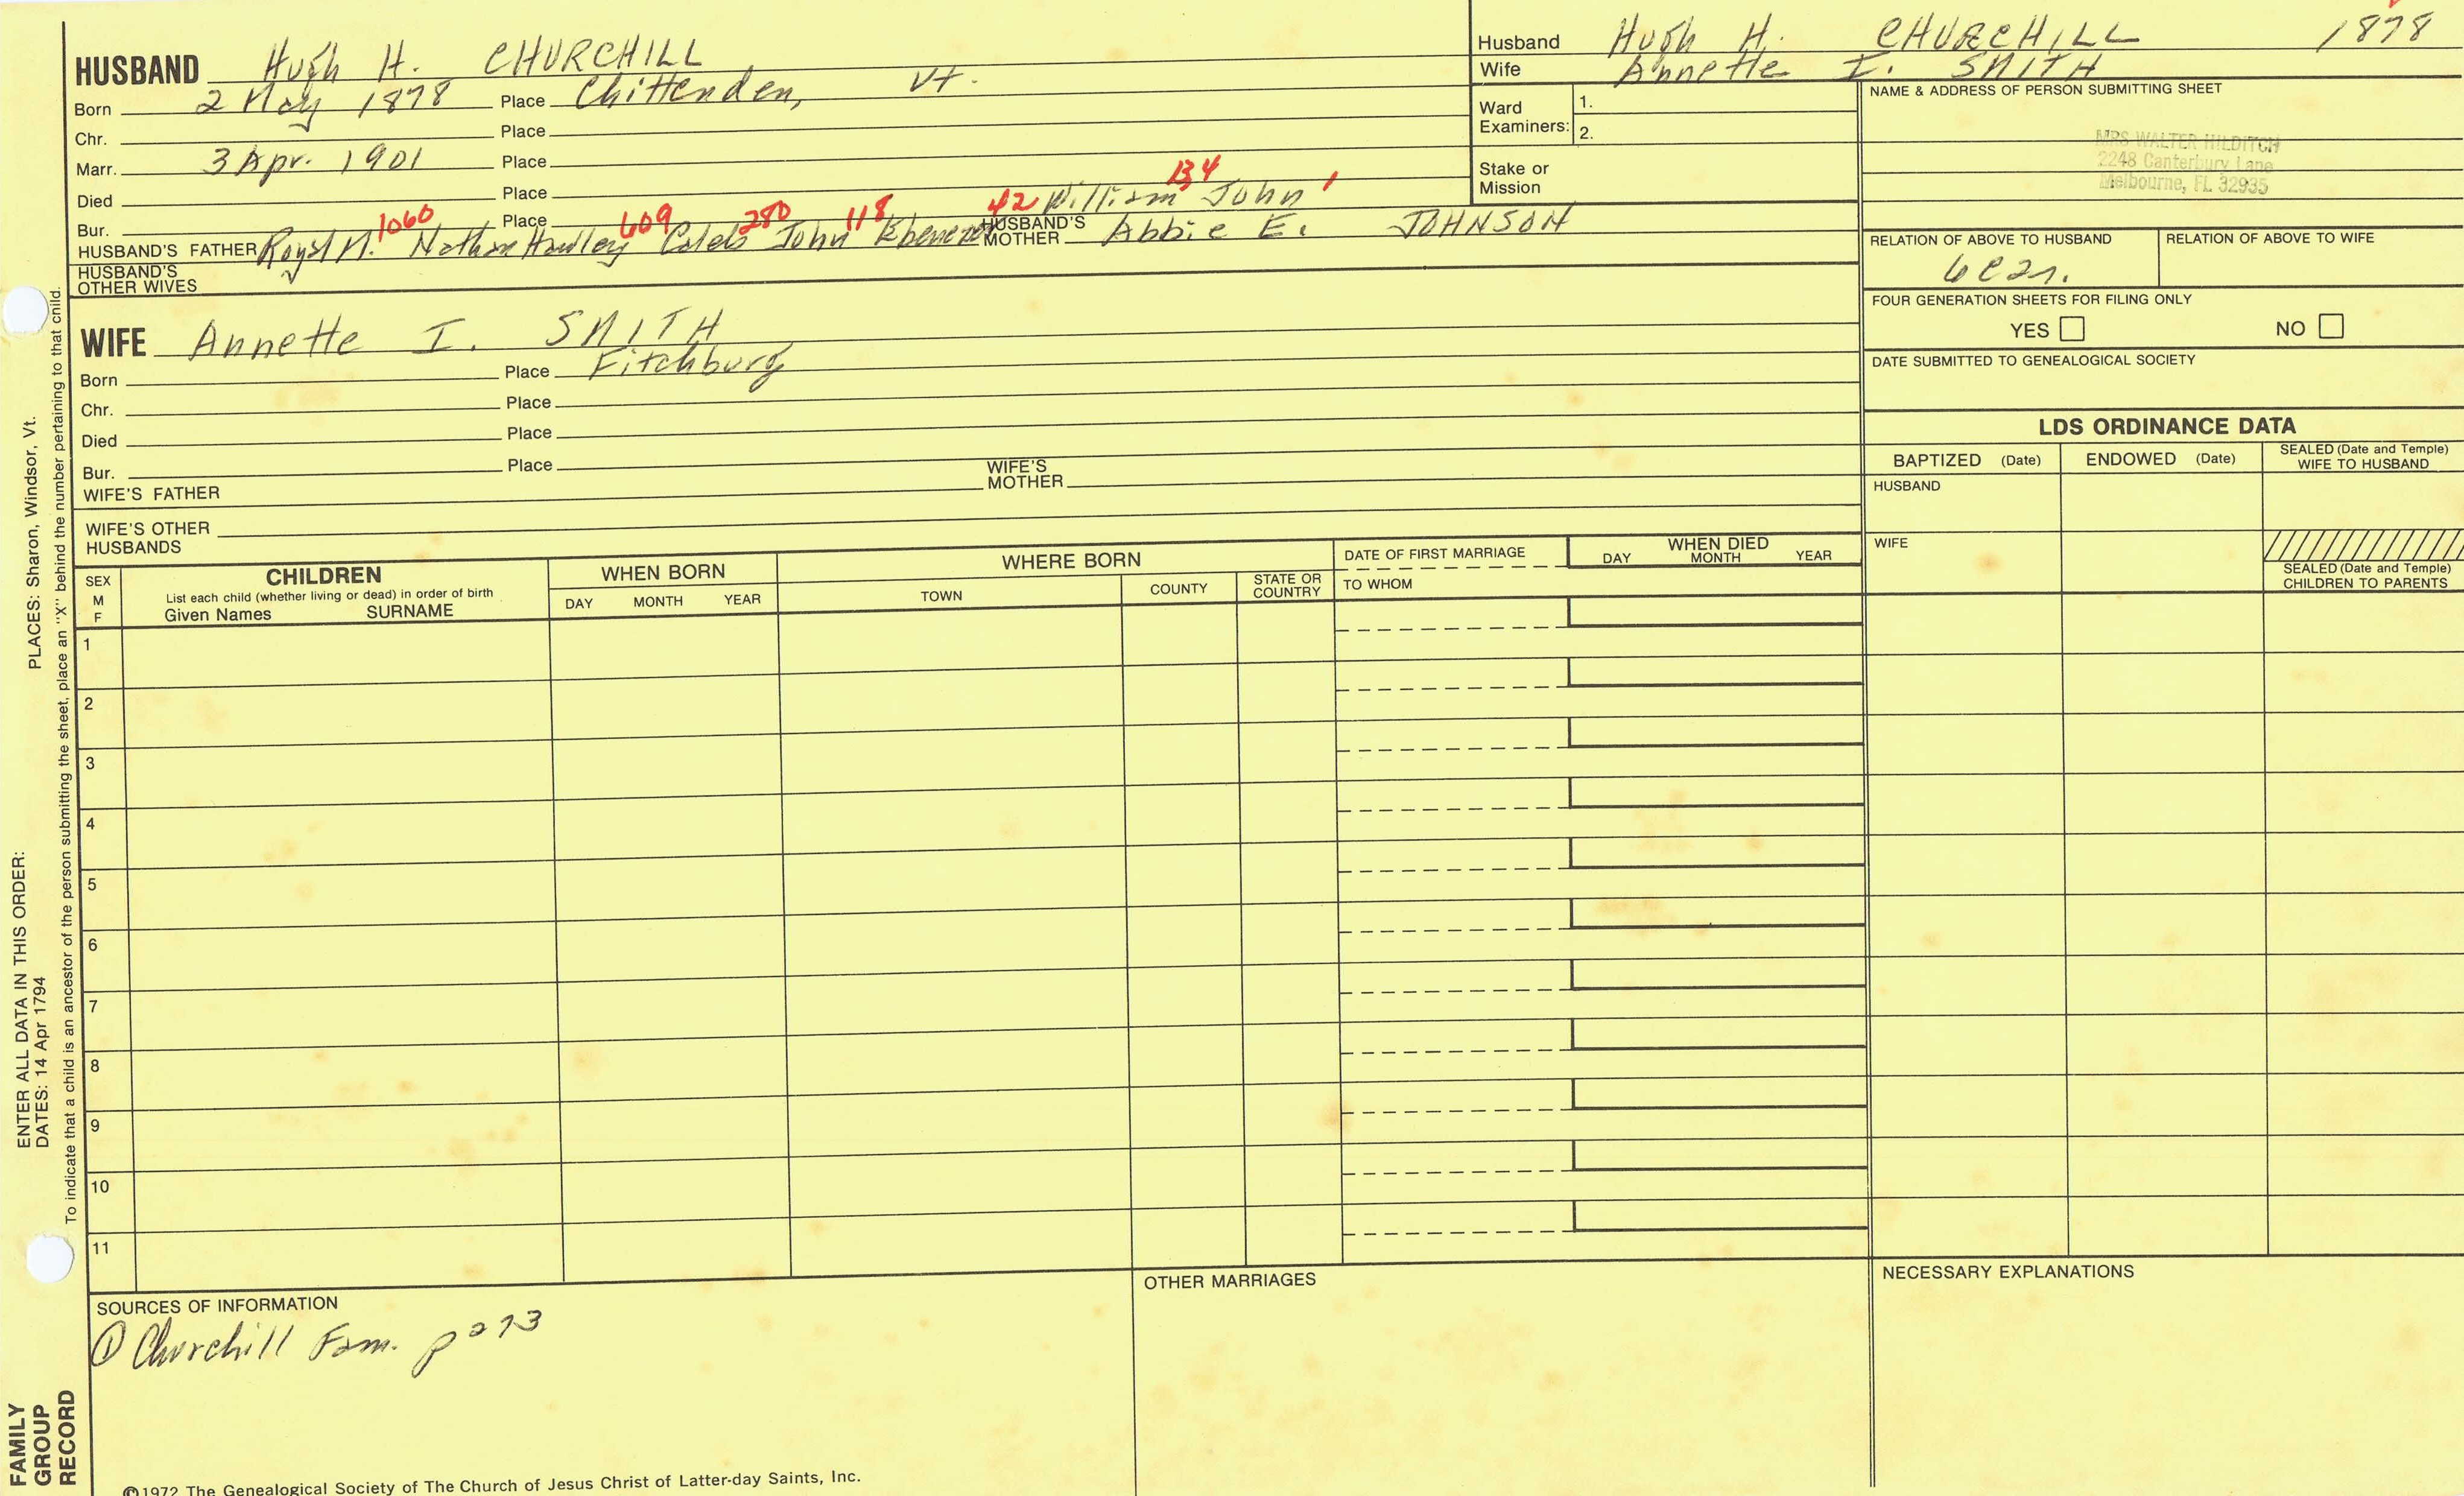 HUSBAND Hugh H. CHURCHILL
Born 2 May 1878 Place Chittenden, Vt.
Chr. Place
Marr. 3 Apr. 1901 Place
Died Place
Bur. Place
42 William 134 John 1
HUSBAND'S FATHER Royal M. 1060 Nathan Hawley 609 Caleb 280 John 118 Ebenezer HUSBAND'S MOTHER Abbie E. JOHNSON
HUSBAND'S OTHER WIVES
Husband Hugh H. CHURCHILL 1878
Wife Annette I. SMITH
Ward Examiners: 1.
2.
Stake or Mission
NAME & ADDRESS OF PERSON SUBMITTING SHEET
MRS WALTER HILDITCH
2248 Canterbury Lane
Melbourne, FL 32935
RELATION OF ABOVE TO HUSBAND RELATION OF ABOVE TO WIFE
FOUR GENERATION SHEETS FOR FILING ONLY
YES NO
DATE SUBMITTED TO GENEALOGICAL SOCIETY
WIFE Annette I. SMITH
Born Place Fitchburg
Chr. Place
Died Place
Bur. Place
WIFE'S FATHER WIFE'S MOTHER
WIFE'S OTHER HUSBANDS
LDS ORDINANCE DATA
BAPTIZED (Date) ENDOWED (Date) SEALED (Date and Temple) WIFE TO HUSBAND
HUSBAND
WIFE
SEALED (Date and Temple) CHILDREN TO PARENTS
SEX M F
CHILDREN
List each child (whether living or dead) in order of birth
Given Names SURNAME
WHEN BORN
DAY MONTH YEAR
WHERE BORN
TOWN COUNTY STATE OR COUNTRY
DATE OF FIRST MARRIAGE
TO WHOM
WHEN DIED
DAY MONTH YEAR
1
2
3
4
5
6
7
8
9
10
11
SOURCES OF INFORMATION
① Churchill Fam. p 273
OTHER MARRIAGES
NECESSARY EXPLANATIONS
©1972 The Genealogical Society of The Church of Jesus Christ of Latter-day Saints, Inc.
ENTER ALL DATA IN THIS ORDER:
DATES: 14 Apr 1794 PLACES: Sharon, Windsor, Vt.
To indicate that a child is an ancestor of the person submitting the sheet, place an "X" behind the number pertaining to that child.
FAMILY
GROUP
RECORD